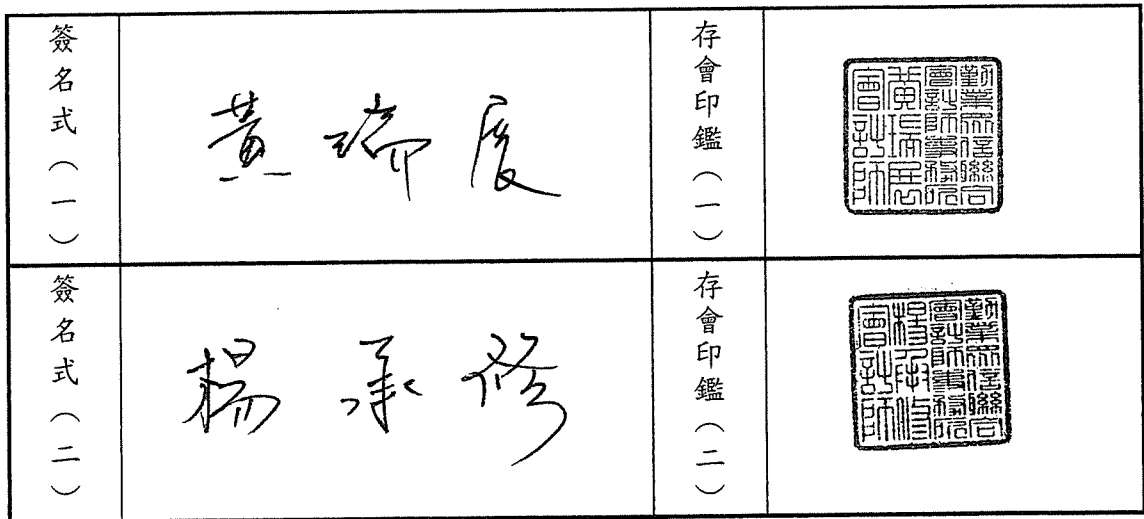 簽名式（一）
黃瑞展
存會印鑑（一）
勤業眾信聯合
會計師事務所
黃瑞展
會計師
簽名式（二）
楊承修
存會印鑑（二）
勤業眾信聯合
會計師事務所
楊承修
會計師